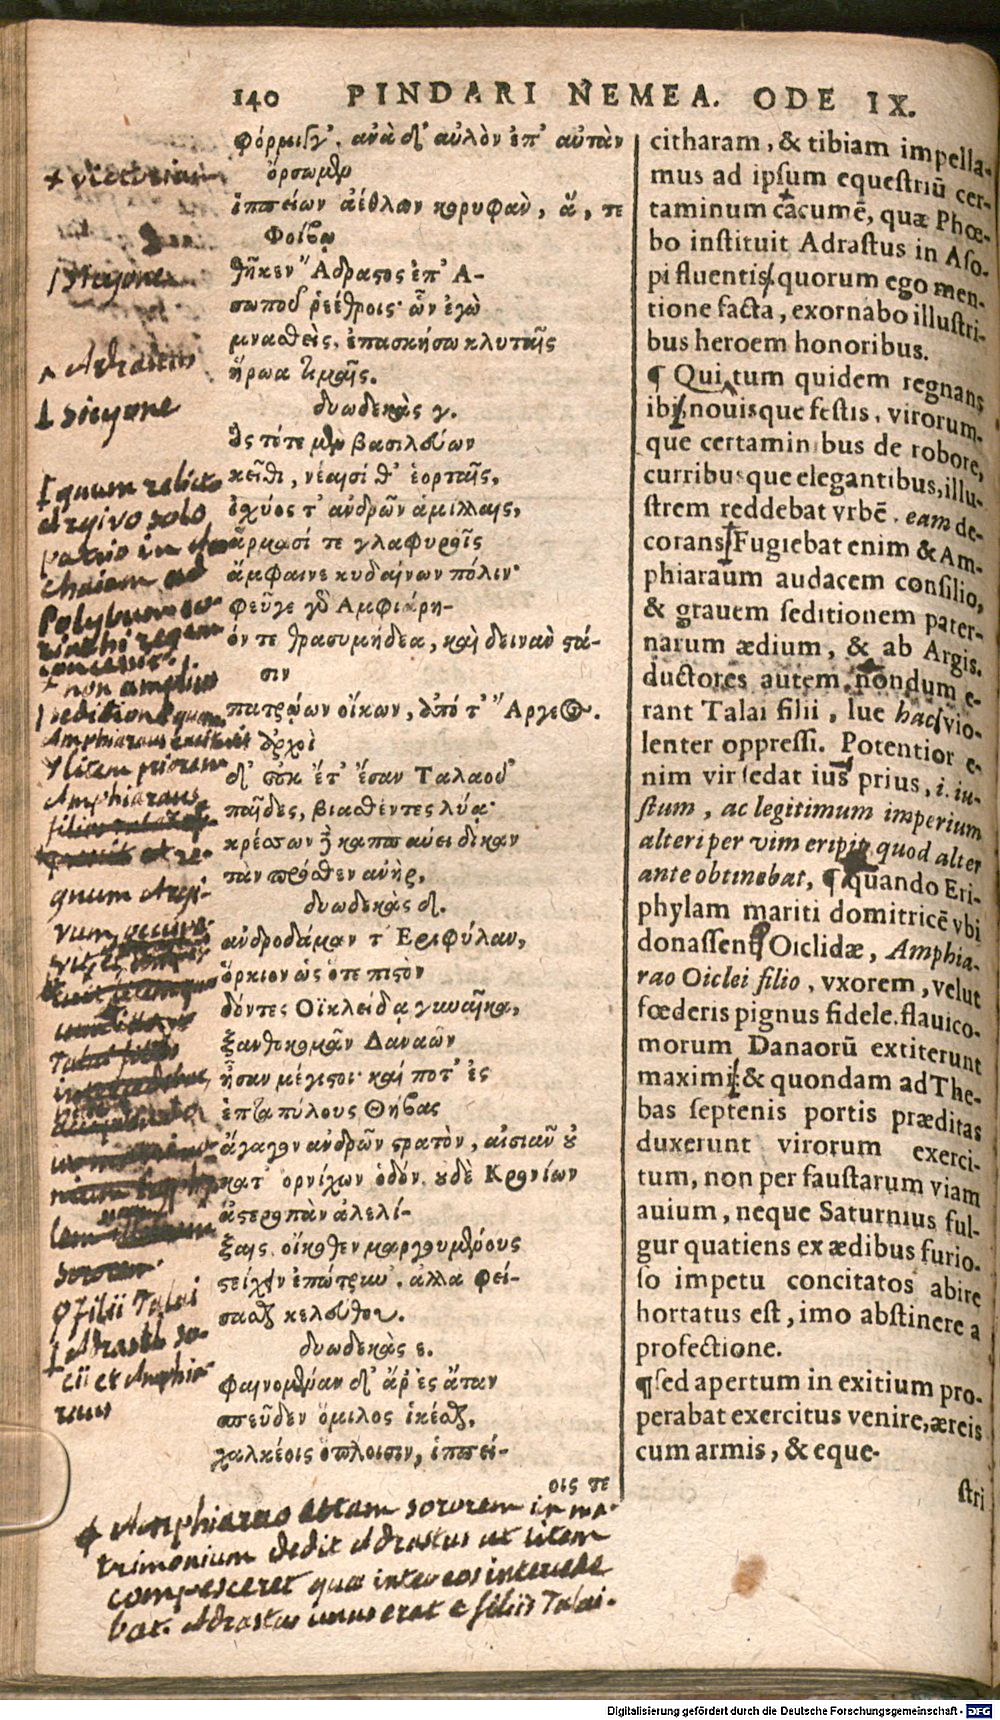 140 PINDARI NEMEA. ODE IX.
φόρμιγγ'. ἀνὰ δ' αὐλὸν ἐπ' αὐτὰν
ὄρσωμεν
ἱππείων ἀέθλων κορυφὰν, ἅ, τε
Φοίβῳ
θῆκεν Ἄδραστος ἐπ' Α-
σωποῦ ῥεέθροις· ὧν ἐγὼ
μνασθεὶς, ἐπασκήσω κλυταῖς
ἥρωα τιμαῖς.
δυωδεκὰς γ.
ὃς τότε μὲν βασιλεύων
κεῖθι, νέαισί θ' ἑορταῖς,
ἰσχύος τ' ἀνδρῶν ἁμίλλαις,
ἅρμασί τε γλαφυροῖς
ἄμφαινε κυδαίνων πόλιν·
φεῦγε γὰρ Αμφιάρη-
όν τε θρασυμήδεα, καὶ δεινὰν στά-
σιν
πατρῴων οἴκων, ἀπό τ' Ἄργεος.
ἀρχοὶ
δ' οὐκ ἔτ' ἔσαν Ταλαοῦ
παῖδες, βιασθέντες λύα·
κρέσσων δὲ καππαύει δίκαν
τὰν πρόσθεν ἀνὴρ,
δυωδεκὰς δ.
ἀνδροδάμαν τ' Εριφύλαν,
ὅρκιον ὡς ὅτε πιστὸν
δόντες Οἰκλείδᾳ γυναῖκα,
ξανθοκομᾶν Δαναῶν
ἦσαν μέγιστοι· καί ποτ' ἐς
ἑπταπύλους Θήβας
ἄγαγον ἀνδρῶν στρατὸν, αἰσιᾶν οὐ
κατ' ὀρνίχων ὁδόν. οὐδὲ Κρονίων
ἀστεροπὰν ἀλελί-
ξαις, οἴκοθεν μαργουμένους
στείχειν ἐπώτρυν', ἀλλὰ φεί-
σασθαι κελεύθου.
δυωδεκὰς ε.
φαινομέναν δ' ἄρ' ἐς ἄταν
σπεῦδεν ὅμιλος ἱκέσθαι,
χαλκέοις ὅπλοισιν, ἱππεί-
οις τε
citharam, & tibiam impella-
mus ad ipsum equestriũ cer-
taminum cacumẽ, quæ Phœ-
bo instituit Adrastus in Aso-
pi fluentis, quorum ego men-
tione facta, exornabo illustri-
bus heroem honoribus.
¶ Qui tum quidem regnans
ibi, nouisque festis, virorum-
que certaminibus de robore,
curribusque elegantibus, illu-
strem reddebat vrbẽ, eam de-
corans. Fugiebat enim & Am-
phiaraum audacem consilio,
& grauem seditionem pater-
narum ædium, & ab Argis.
ductores autem nondum e-
rant Talai filii, lue hac vio-
lenter oppressi. Potentior e-
nim vir sedat ius prius, i. iu-
stum, ac legitimum imperium
alteri per vim eripit, quod alter
ante obtinebat, ¶ quando Eri-
phylam mariti domitricẽ vbi
donassent Oiclidæ, Amphia-
rao Oiclei filio, vxorem, velut
fœderis pignus fidele, flauico-
morum Danaorũ extiterunt
maximi: & quondam ad The-
bas septenis portis præditas
duxerunt virorum exerci-
tum, non per faustarum viam
auium, neque Saturnius ful-
gur quatiens ex ædibus furio-
so impetu concitatos abire
hortatus est, imo abstinere a
profectione.
¶ sed apertum in exitium pro-
perabat exercitus venire, æreis
cum armis, & eque-
stri
Sicyone
Adrastus
Sicyone
quum relicto
Argivo solo
patrio in A
chaiam ad
Polybum
regem
concessit.
non amplius
seditione quam
Amphiaraus
litem priorem
Amphiaraus
gnum Argi-
vum
filii Talai
Adrasti so-
cii et Amphia-
raus
Amphiarao etiam sororem in ma-
trimonium dedit Adrastus ut litem
compesceret quæ inter eos intercede
bat. Adrastus unus erat e filiis Talai.
Digitalisierung gefördert durch die Deutsche Forschungsgemeinschaft - DFG